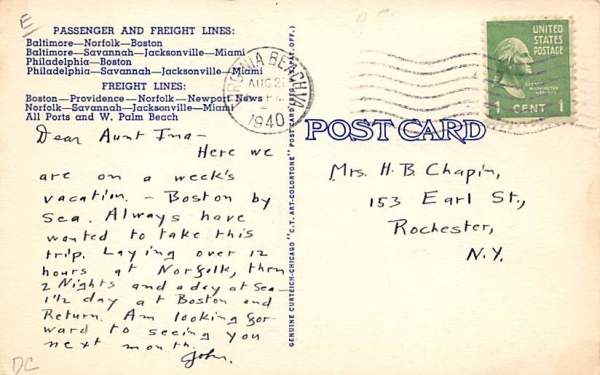 E
PASSENGER AND FREIGHT LINES:
Baltimore—Norfolk—Boston
Baltimore—Savannah—Jacksonville—Miami
Philadelphia—Boston
Philadelphia—Savannah—Jacksonville—Miami
FREIGHT LINES:
Boston—Providence—Norfolk—Newport News
Norfolk—Savannah—Jacksonville—Miami
All Ports and W. Palm Beach
Dear Aunt Ina—
Here we
are on a week's
vacation. — Boston by
Sea. Always have
wanted to take this
trip. Laying over 12
hours at Norfolk, then
2 Nights and a day at Sea—
1 1/2 day at Boston and
Return. Am looking for-
ward to seeing you
next month.
John.
DC
GENUINE CURTEICH-CHICAGO "C.T. ART-COLORTONE" POST CARD (REG. U.S. PAT. OFF.)
VIRGINIA BEACH VA
AUG
1940
POST CARD
UNITED
STATES
POSTAGE
1 CENT 1
Mrs. H. B. Chapin,
153 Earl St.,
Rochester,
N.Y.